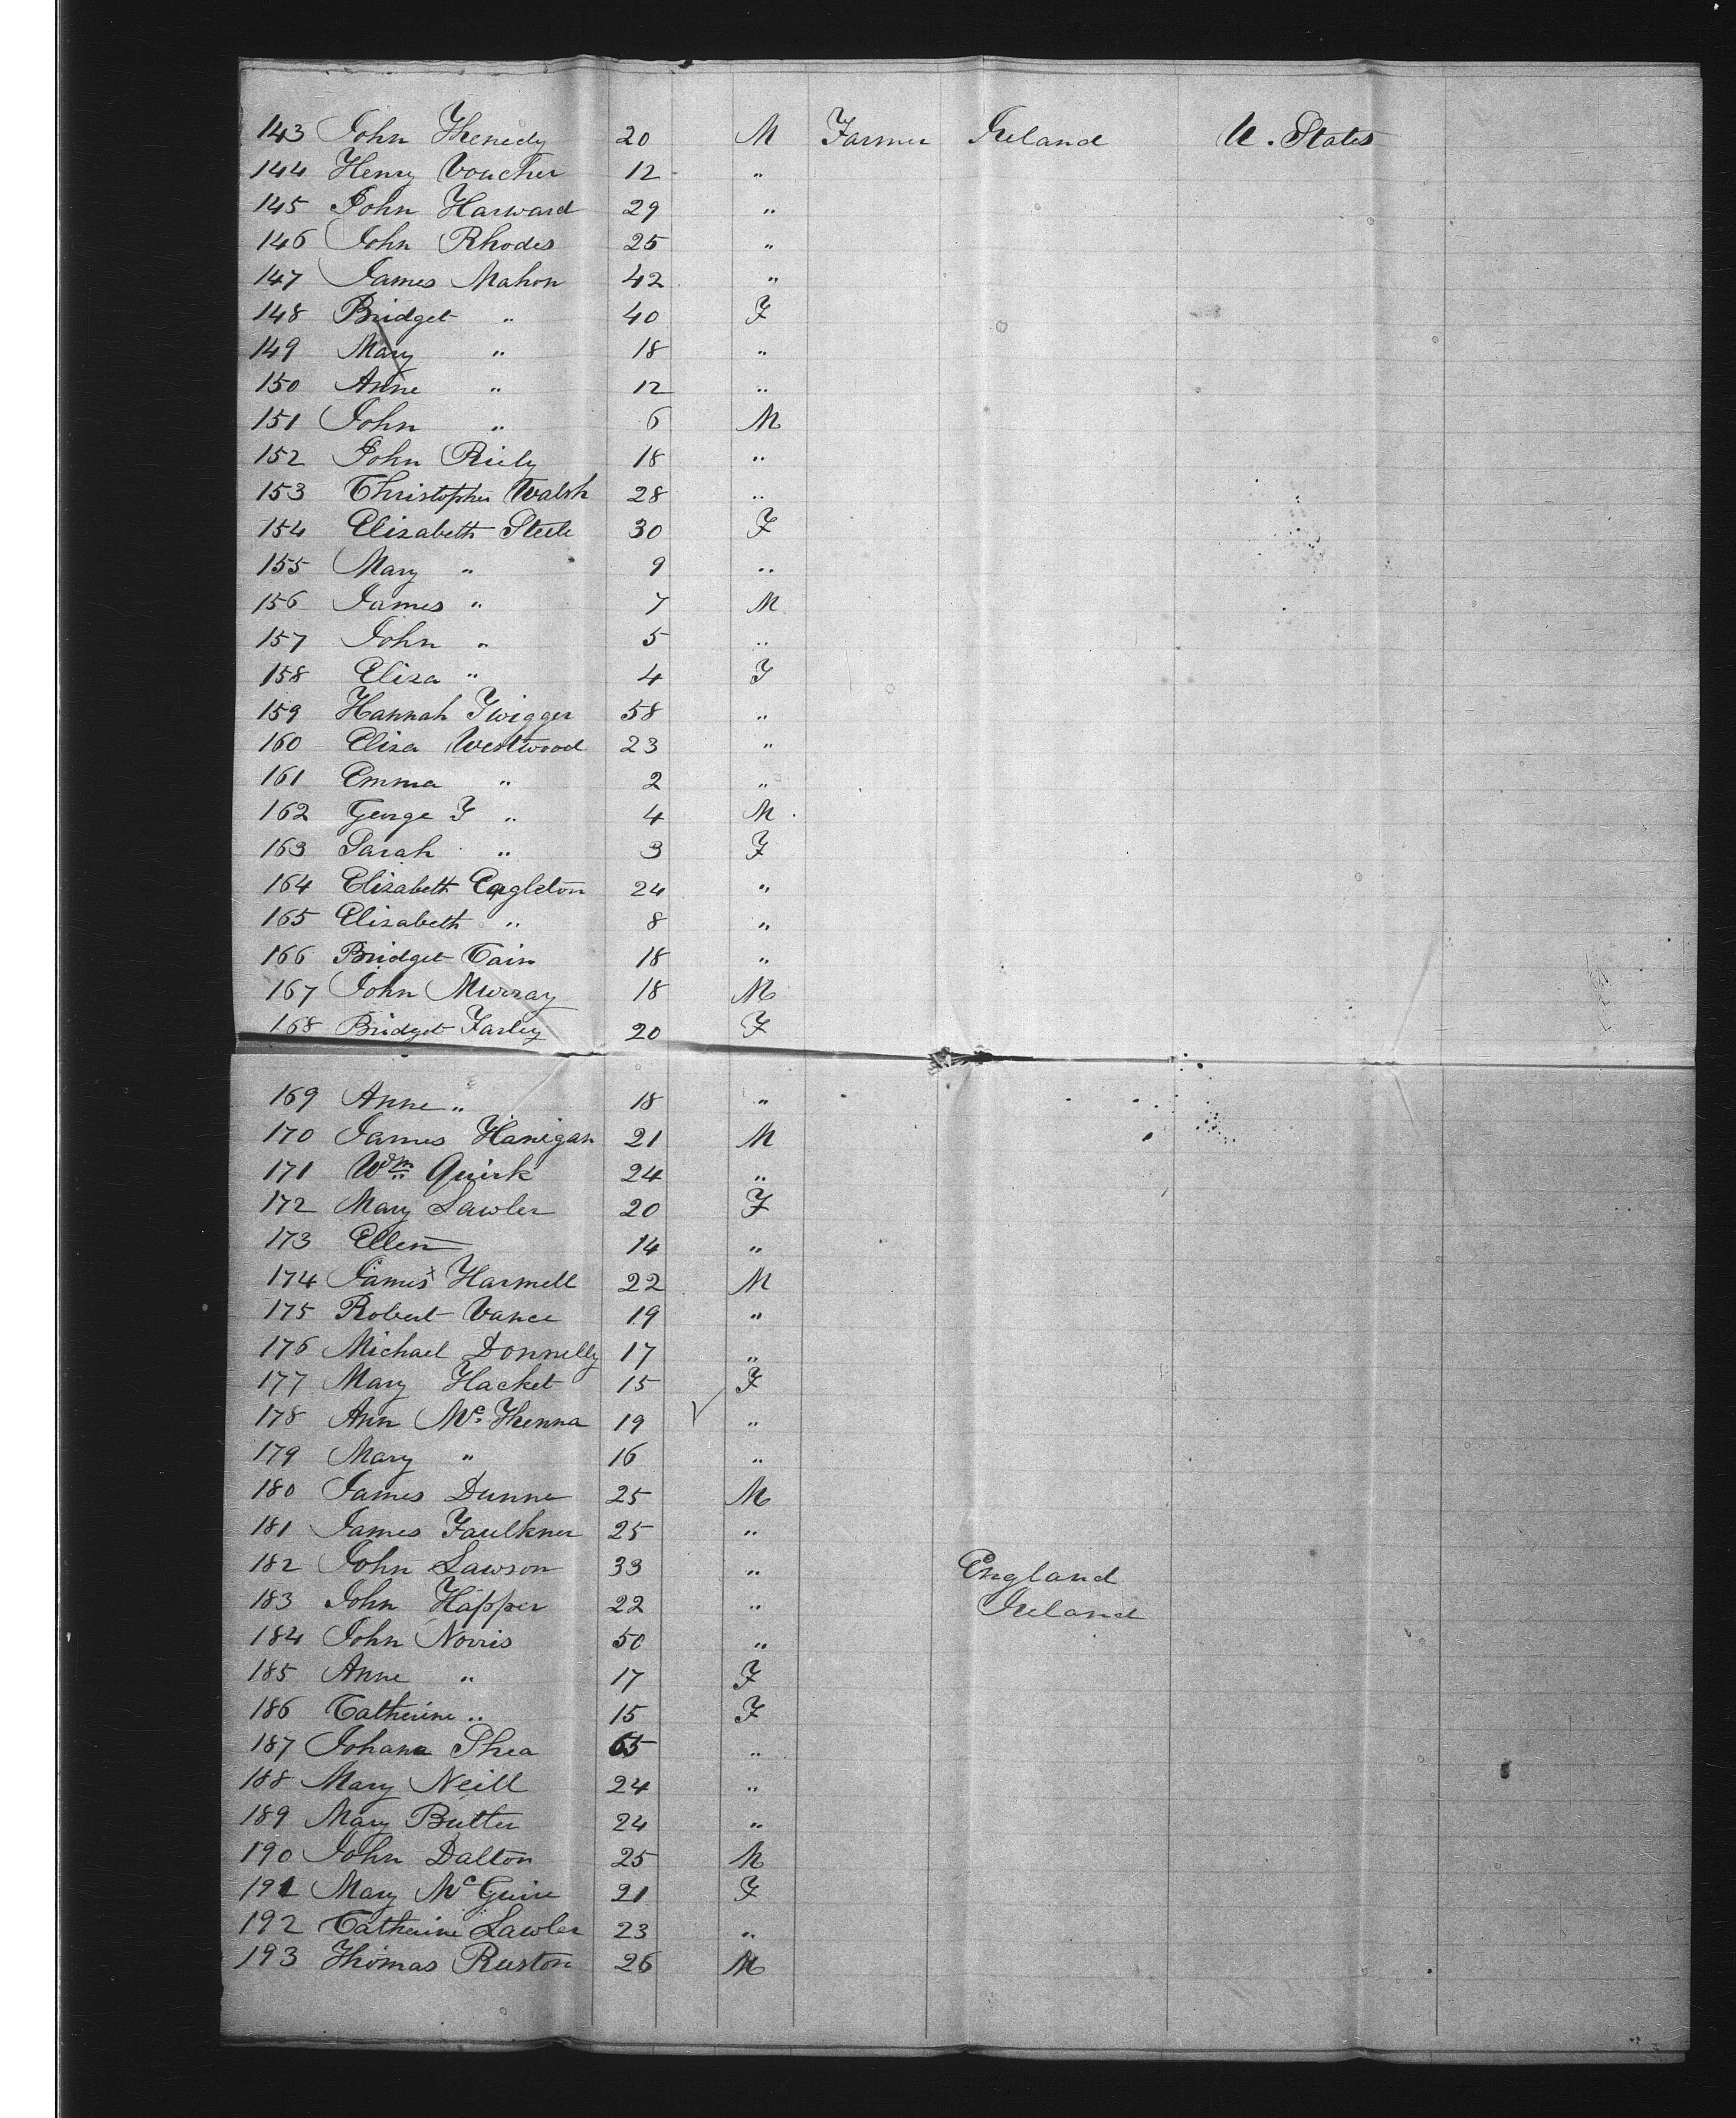 143 John Khenedy 20 M Farmer Ireland U. States
144 Henry Voucher 12 "
145 John Harward 29 "
146 John Rhodes 25 "
147 James Mahon 42 "
148 Bridget " 40 F
149 Mary " 18 "
150 Anne " 12 "
151 John " 6 M
152 John Riely 18 "
153 Christopher Walsh 28 "
154 Elisabeth Steele 30 F
155 Mary " 9 "
156 James " 7 M
157 John " 5 "
158 Eliza " 4 F
159 Hannah Twigger 58 "
160 Eliza Westwood 23 "
161 Emma " 2 "
162 George F " 4 M
163 Sarah " 3 F
164 Elizabeth Eagleton 24 "
165 Elisabeth " 8 "
166 Bridget Cain 18 "
167 John Murray 18 M
168 Bridget Farley 20 F
169 Anne " 18 "
170 James Hanigan 21 M
171 Wm Quirk 24 "
172 Mary Lawler 20 F
173 Ellen 14 "
174 James Harmell 22 M
175 Robert Vance 19 "
176 Michael Donnelly 17 "
177 Mary Hacket 15 F
178 Ann Mc Khenna 19 "
179 Mary " 16 "
180 James Dunne 25 M
181 James Faulkner 25 "
182 John Lawson 33 " England
183 John Happer 22 " Ireland
184 John Norris 50 "
185 Anne " 17 F
186 Catherine " 15 F
187 Johana Shea 65 "
188 Mary Neill 24 "
189 Mary Butler 24 "
190 John Dalton 25 M
191 Mary McGuire 21 F
192 Catherine Lawler 23 "
193 Thomas Ruston 26 M